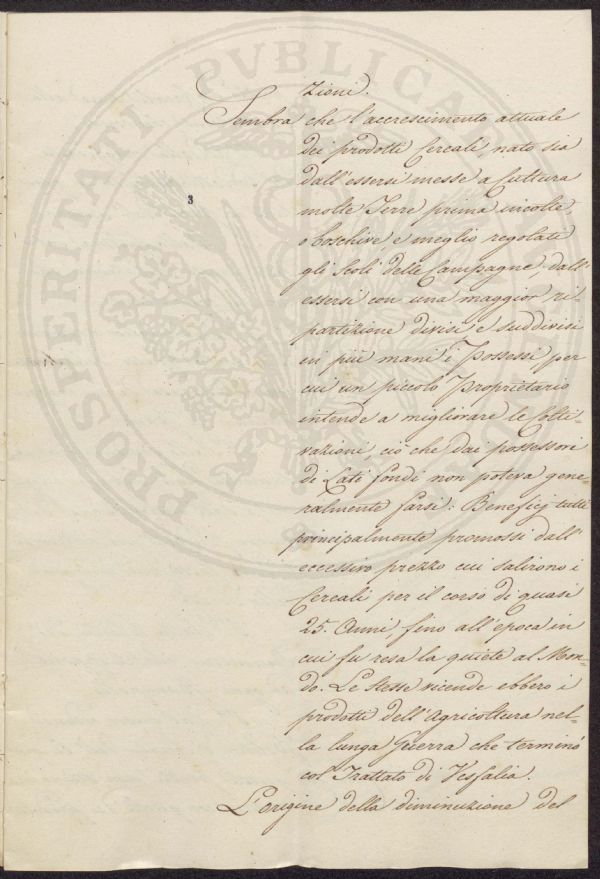 zioni.
Sembra che l'accrescimento attuale
dei prodotti Cereali nato sia
dall'essersi messe a Cultura
3
molte Terre prima incolte,
o boschive e meglio regolati
gli Scoli delle Campagne, dall'
essersi con una maggior ri-
partizione divisi e suddivisi
in più mani i Possessi, per
cui un piccolo Proprietario
intende a migliorare le Colti-
vazioni, ciò che dai possessori
di Lati fondi non poteva gene-
ralmente farsi: Beneficj tutti
principalmente promossi dall'
eccessivo prezzo cui salirono i
Cereali per il corso di quasi
25. Anni, fino all'epoca in
cui fu resa la quiete al Mon-
do. Le stesse vicende ebbero i
prodotti dell'Agricoltura nel-
la lunga Guerra che terminò
col Trattato di Vesfalia.
L'origine della diminuzione del
PROSPERITATI PUBLICAE